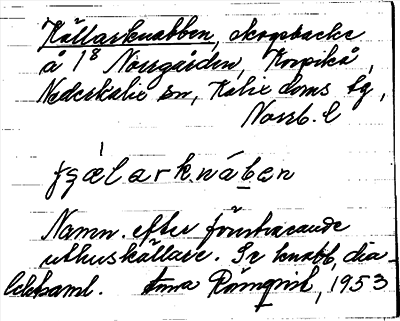 Källarknabben, skogsbacke
å 1⁸ Norrgården, Korpikå,
Nederkalix sn, Kalix doms lg,
Norrb. l
ʃʒælarknábən
Namn. efter försvarande
uthuskällare. Se knabb, dia-
lektsaml. Anna Römqvist, 1953